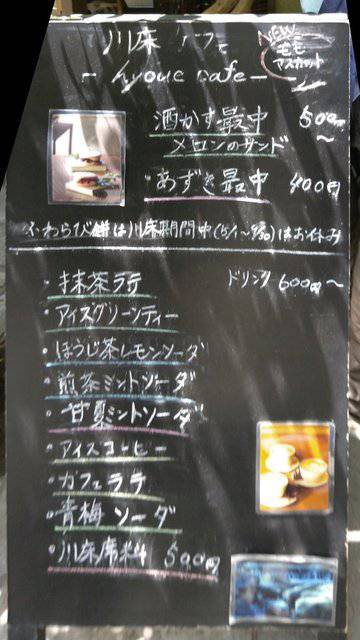 川床カフェ
NEW
モモ
マスカット
- hyoue cafe -
酒かす最中 500円〜
メロンのサンド
・あずき最中 400円
わらび餅は川床期間中(5/1〜9/30)はお休み
ドリンク600円〜
・抹茶ラテ
・アイスグリーンティー
・ほうじ茶レモンソーダ
・煎茶ミントソーダ
・甘夏ミントソーダ
・アイスコーヒー
・カフェラテ
・青梅ソーダ
・川床席料 500円